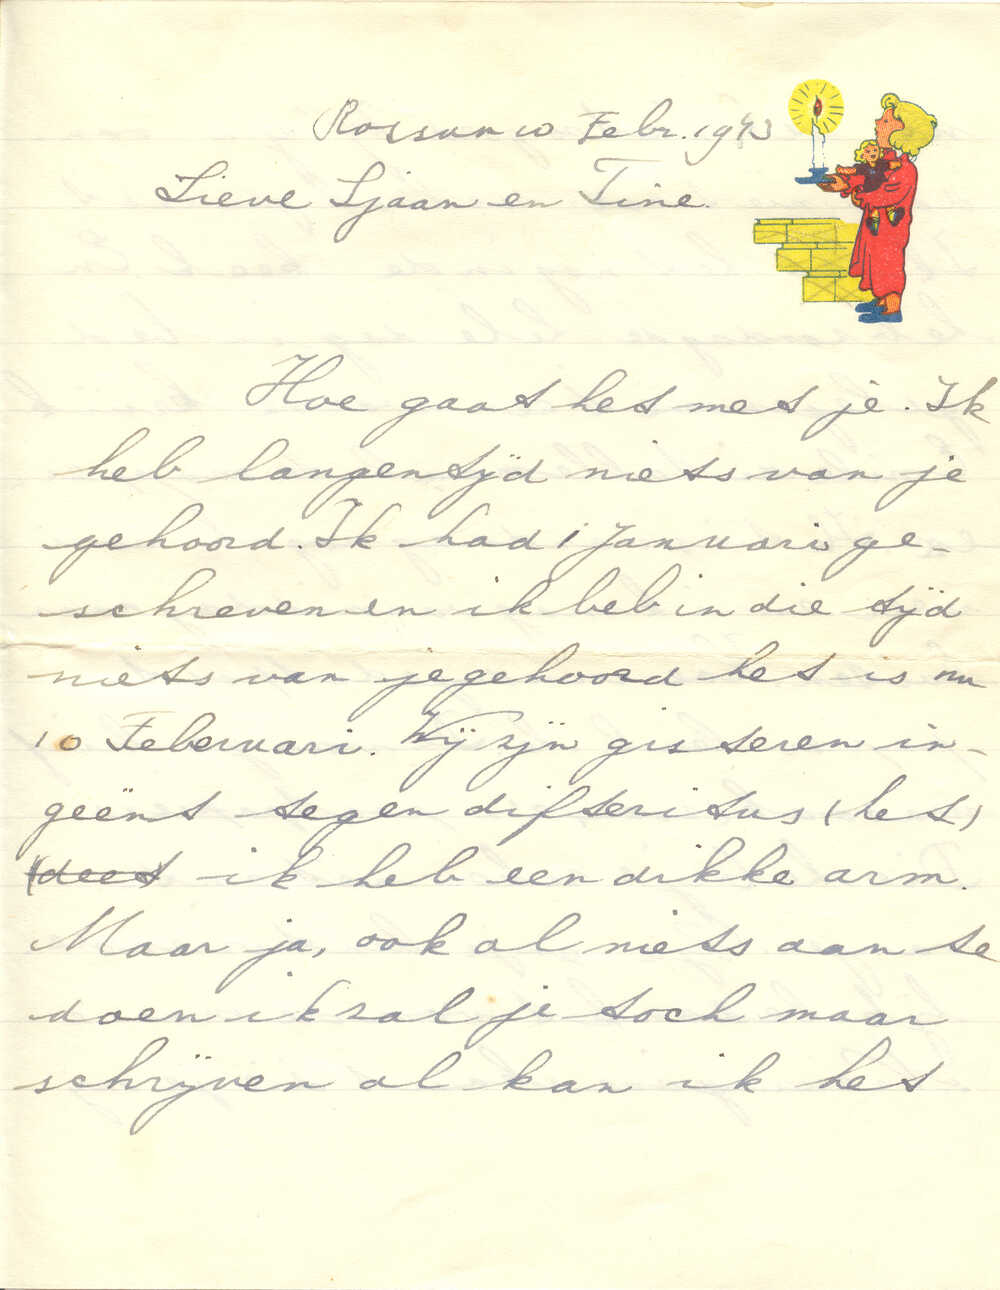 Rossum 10 Febr. 1943
Lieve Sjaan en Tine.
Hoe gaat het met je. Ik
heb langentijd niets van je
gehoord. Ik had 1 Januari ge-
schreven en ik beb in die tijd
niets van je gehoord het is nu
10 Feberuari. Wij zijn gisteren in-
geënt tegen difteritus (het)
(deet ik heb een dikke arm.
Maar ja, ook al niets aan te
doen ik zal je toch maar
schrijven al kan ik het